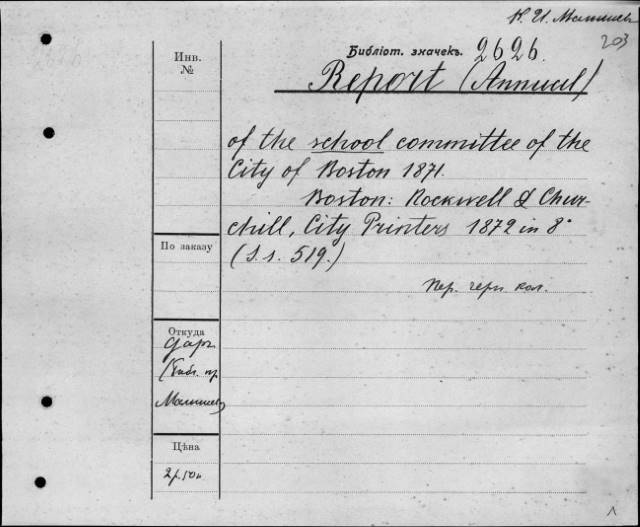 Н. И. Малышев
203
Библіот. значекъ. 2626.
Report (Annual)
Инв.
№
of the school committee of the
City of Boston 1871.
Boston: Rockwell & Chur-
chill, City Printers 1872 in 8°
(S. s. 519.)
По заказу
Пер. черн. кол.
Откуда
Даръ
Цѣна
2 р. 50 к.